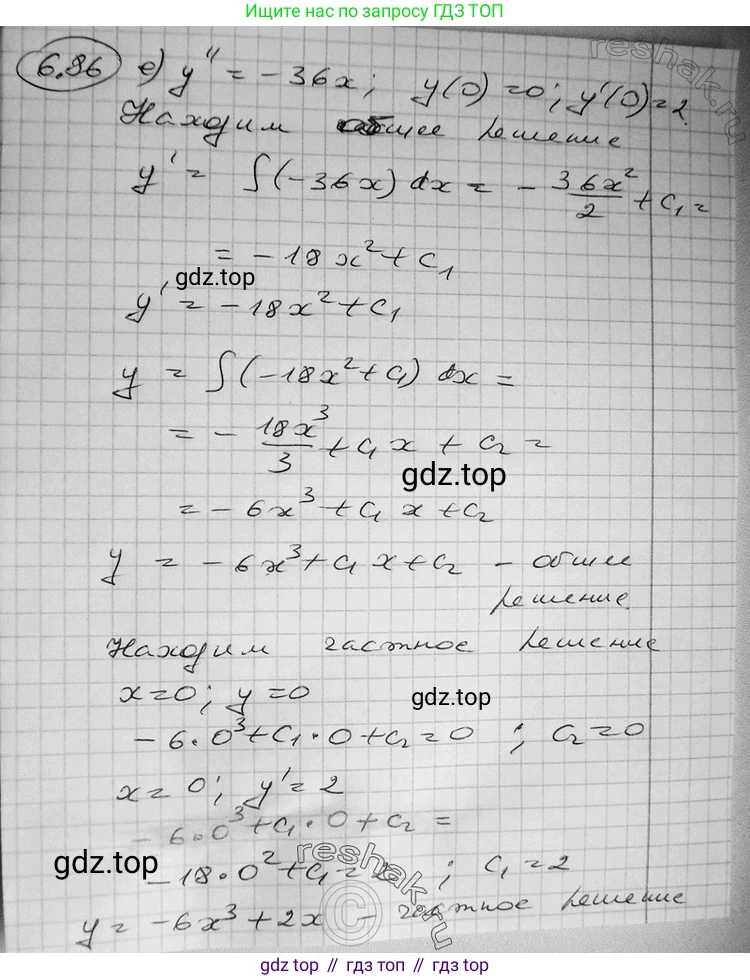 Ищите нас по запросу ГДЗ ТОП
6.86 е) y'' = -36x; y(0) = 0; y'(0) = 2.
Находим общее решение
y' = ∫(-36x)dx = -36x²/2 + C₁ =
= -18x² + C₁
gdz.top
y' = -18x² + C₁
y = ∫(-18x² + C₁)dx =
= -18x³/3 + C₁x + C₂ =
gdz.top
= -6x³ + C₁x + C₂
y = -6x³ + C₁x + C₂ - общее
решение
Находим частное решение
x=0; y=0
gdz.top
-6·0³ + C₁·0 + C₂ = 0; C₂=0
x=0; y'=2
-6·0³ + C₁·0 + C₂ =
gdz.top
-18·0² + C₁ = 2; C₁=2
reshak.ru
y = -6x³ + 2x - частное решение
gdz.top // гдз.топ // gdz.top // гдз.топ